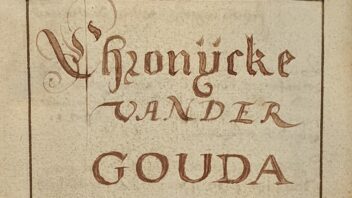 Chronÿcke
VANDER
GOUDA